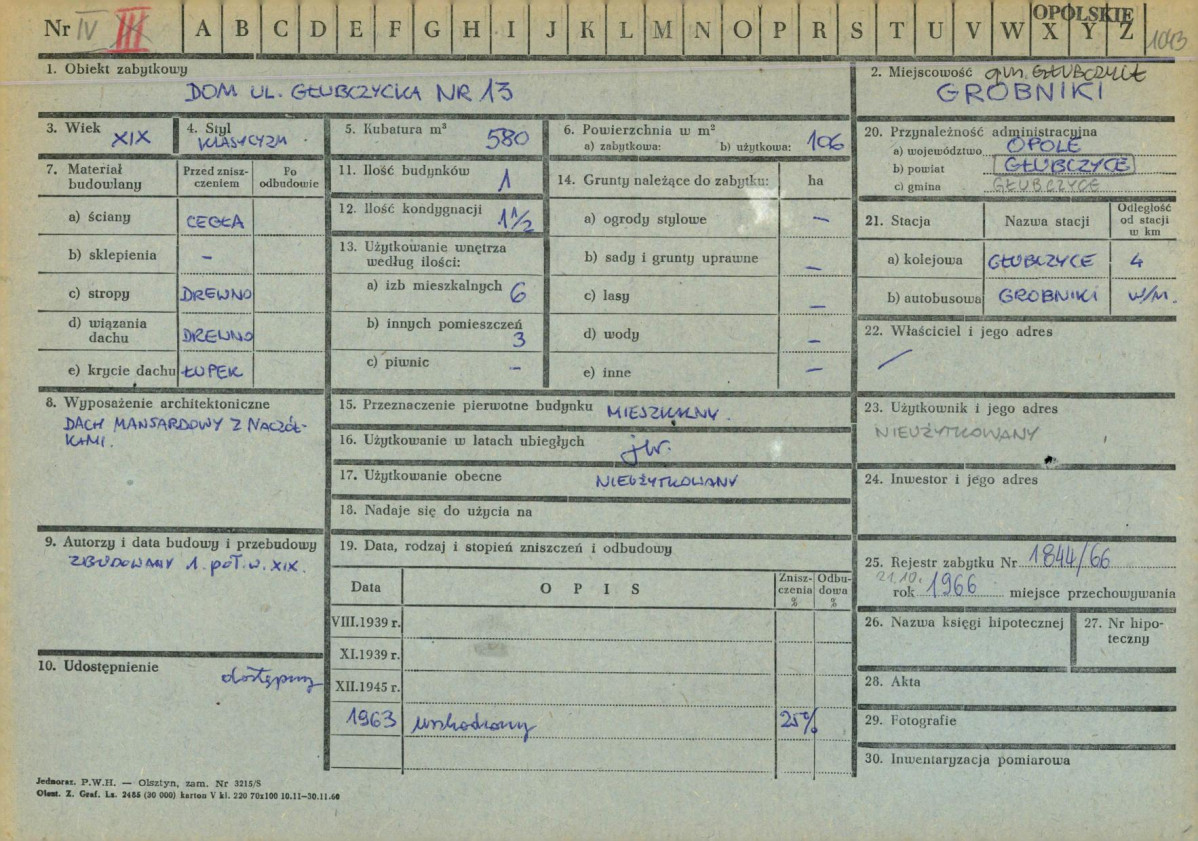 Nr IV III A B C D E F G H I J K L M N O P R S T U V W X Y Z
OPOLSKIE
1. Obiekt zabytkowy
DOM UL. GŁUBCZYCKA NR 13
2. Miejscowość gm. GŁUBCZYCE
GROBNIKI
3. Wiek XIX
4. Styl KLASYCYZM
5. Kubatura m³ 580
6. Powierzchnia w m²
a) zabytkowa: b) użytkowa: 106
7. Materiał budowlany
Przed zniszczeniem
Po odbudowie
a) ściany CEGŁA
b) sklepienia –
c) stropy DREWNO
d) wiązania dachu DREWNO
e) krycie dachu ŁUPEK
8. Wyposażenie architektoniczne
DACH MANSARDOWY Z NACZÓŁ-
KAMI.
9. Autorzy i data budowy i przebudowy
ZBUDOWANY 1. POŁ. W. XIX.
10. Udostępnienie
dostępny
11. Ilość budynków 1
12. Ilość kondygnacji 1 1/2
13. Użytkowanie wnętrza
według ilości:
a) izb mieszkalnych 6
b) innych pomieszczeń
3
c) piwnic –
14. Grunty należące do zabytku: ha
a) ogrody stylowe –
b) sady i grunty uprawne –
c) lasy –
d) wody –
e) inne –
15. Przeznaczenie pierwotne budynku MIESZKALNY.
16. Użytkowanie w latach ubiegłych jw.
17. Użytkowanie obecne NIEUŻYTKOWANY
18. Nadaje się do użycia na
19. Data, rodzaj i stopień zniszczeń i odbudowy
Data O P I S Znisz-
czenia
% Odbu-
dowa
%
VIII.1939 r.
XI.1939 r.
XII.1945 r.
1963 uszkodzony 25%
20. Przynależność administracyjna
a) województwo OPOLE
b) powiat GŁUBCZYCE
c) gmina GŁUBCZYCE
21. Stacja Nazwa stacji Odległość
od stacji
w km
a) kolejowa GŁUBCZYCE 4
b) autobusowa GROBNIKI W/M.
22. Właściciel i jego adres
23. Użytkownik i jego adres
NIEUŻYTKOWANY
24. Inwestor i jego adres
25. Rejestr zabytku Nr 1844/66
21.10.
rok 1966 miejsce przechowywania
26. Nazwa księgi hipotecznej
27. Nr hipo-
teczny
28. Akta
29. Fotografie
30. Inwentaryzacja pomiarowa
Jednoraz. P.W.H. — Olsztyn, zam. Nr 3215/S
Olszt. Z. Graf. Ls. 2485 (30 000) karton V kl. 220 70x100 10.11—30.11.60